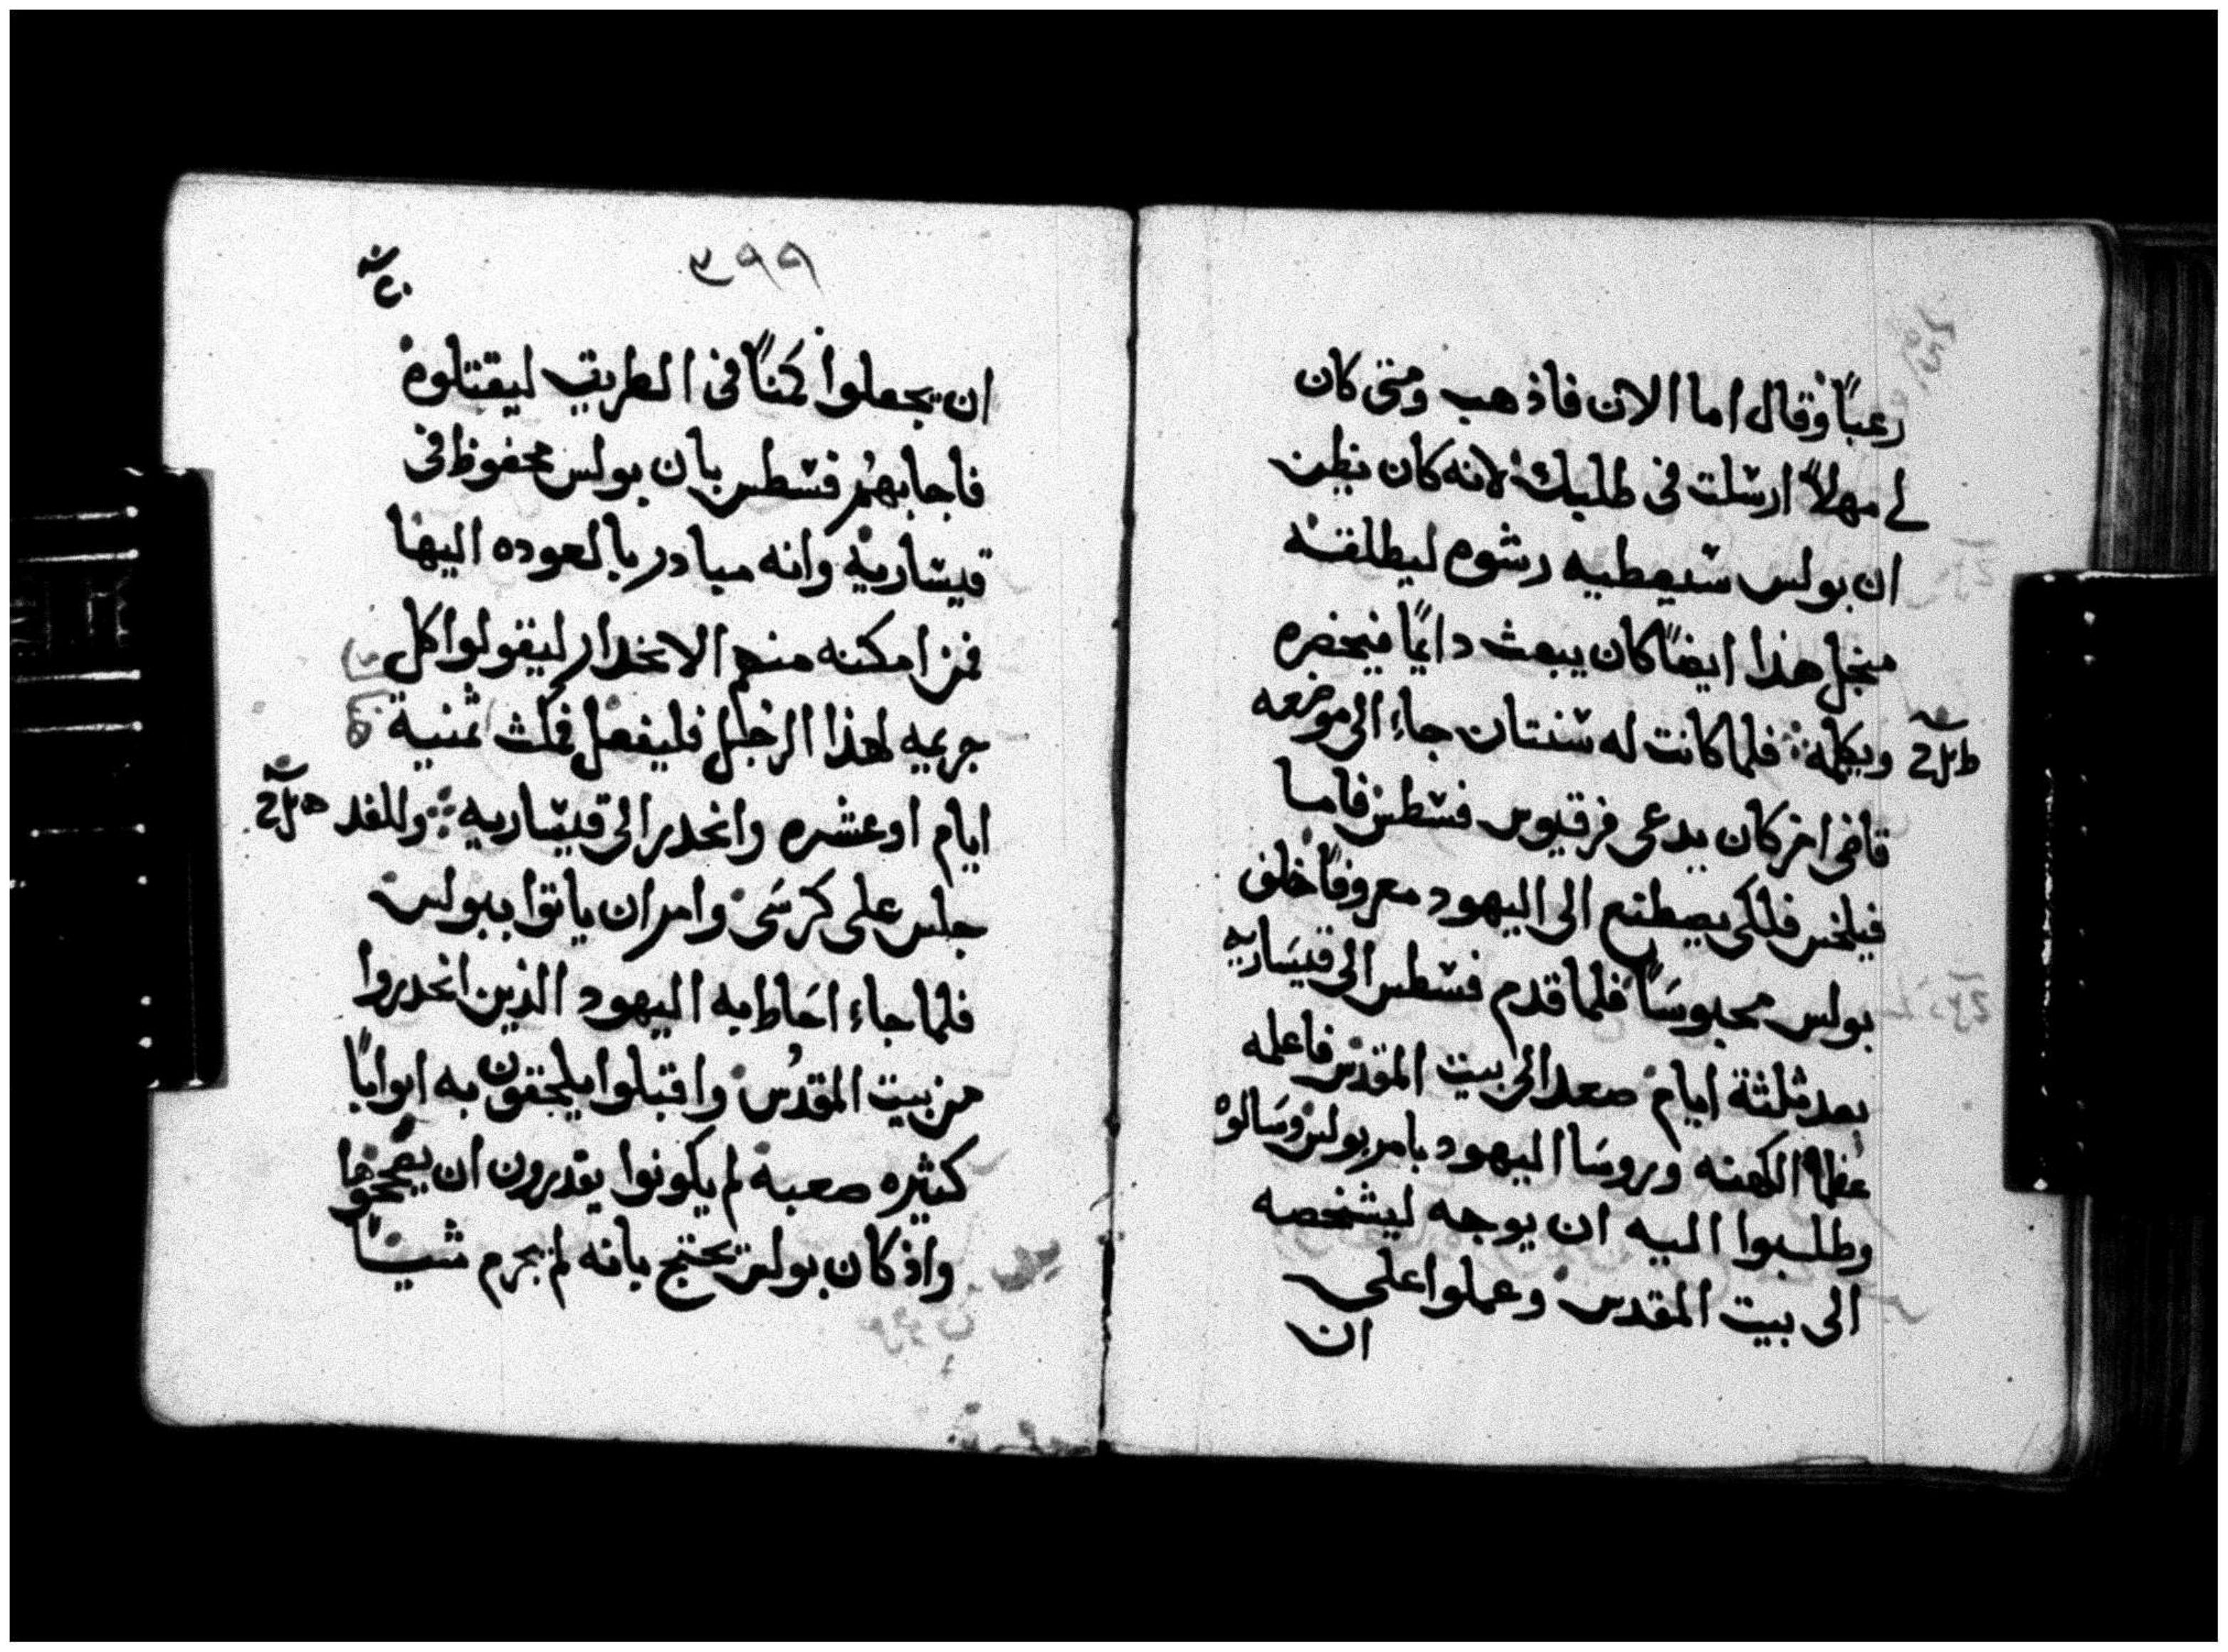 رعباً وقال اما الان فاذهب ومتى كان
لى مهلاً ارسلت فى طلبك لانه كان يظن
ان بولس سيعطيه رشوه ليطلقه
منجل هذا ايضاً كان يبعث دايماً فيحضره
ويكلمه فلما كانت له سنتان جاء الى موضعه
قاضى اخر كان يدعى فرقيوس فسطس فاما
فيلخس فلكى يصطنع الى اليهود معروفاً خلف
بولس محبوساً فلما قدم فسطس الى قيساريه
بعد ثلثة ايام صعد الى بيت المقدس فاعلمه
عظما الكهنه وروسا اليهود بامر بولس وسالوه
وطلبوا اليه ان يوجه ليشخصه
الى بيت المقدس وعملوا على
ان
٣٩٩
ان يجعلوا كمناً فى الطريق ليقتلوه
فاجابهم فسطس بان بولس محفوظ فى
قيساريه وانه مبادر بالعوده اليها
فمن امكنه منهم الانحدار ليقولوا كل
جريمه لهذا الرجل فليفعل فمكث ثمنية
ايام او عشره وانحدر الى قيساريه وللغد
جلس على كرسى وامر ان ياتوا ببولس
فلما جاء احاط به اليهود الذين انحدروا
من بيت المقدس واقبلوا يلحقون به ابواباً
كثيره صعبه لم يكونوا يقدرون ان يصححوها
واذ كان بولس يحتج بانه لم يجرم شيئاً